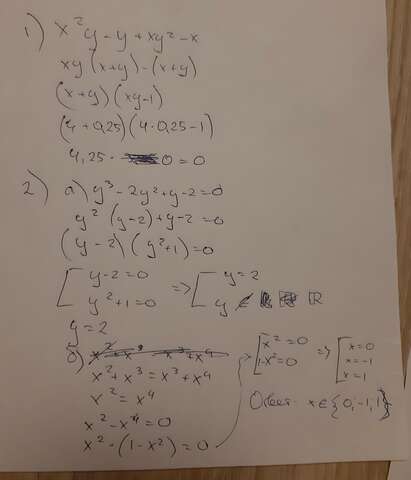 1) x²y - y + xy² - x
xy(x+y) - (x+y)
(x+y)(xy-1)
(4+0,25)(4·0,25-1)
4,25 · 0 = 0
2) а) y³ - 2y² + y - 2 = 0
y²(y-2) + y - 2 = 0
(y-2)(y²+1) = 0
[ y-2=0 => [ y=2
[ y²+1=0 [ y ∉ R
y = 2
б) x² + x³ = x³ + x⁴
x² = x⁴
x² - x⁴ = 0
x² · (1-x²) = 0
[ x² = 0 => [ x=0
[ 1-x²=0 [ x=-1
[ x=1
Ответ: x ∈ {0, -1, 1}